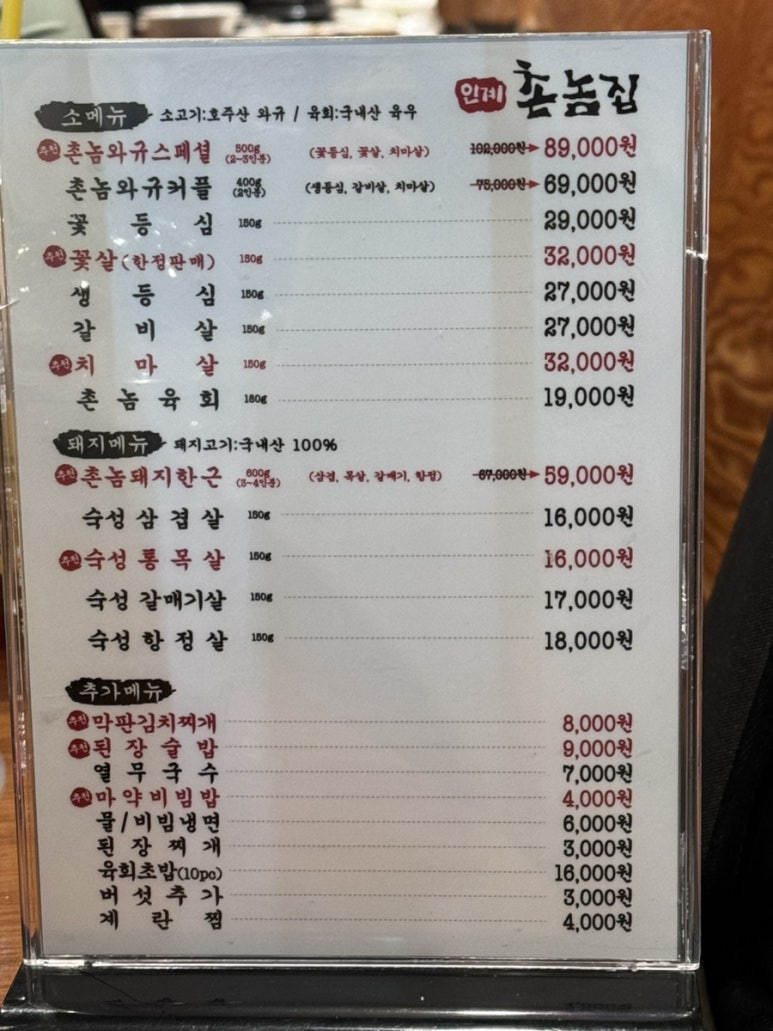 인계 촌놈집
소메뉴 소고기:호주산 와규 / 육회:국내산 육우
추천 촌놈와규스페셜 500g (2~3인분) (꽃등심, 꽃살, 치마살) 102,000원 89,000원
촌놈와규커플 400g (2인분) (생등심, 갈비살, 치마살) 75,000원 69,000원
꽃등심 150g 29,000원
추천 꽃살(한정판매) 150g 32,000원
생등심 150g 27,000원
갈비살 150g 27,000원
추천 치마살 150g 32,000원
촌놈육회 180g 19,000원
돼지메뉴 돼지고기:국내산 100%
추천 촌놈돼지한근 600g (3~4인분) (삼겹, 목살, 갈매기, 항정) 67,000원 59,000원
숙성삼겹살 150g 16,000원
추천 숙성통목살 150g 16,000원
숙성갈매기살 150g 17,000원
숙성항정살 150g 18,000원
추가메뉴
추천 막판김치찌개 8,000원
추천 된장술밥 9,000원
열무국수 7,000원
추천 마약비빔밥 4,000원
물/비빔냉면 6,000원
된장찌개 3,000원
육회초밥(10pc) 16,000원
버섯추가 3,000원
계란찜 4,000원